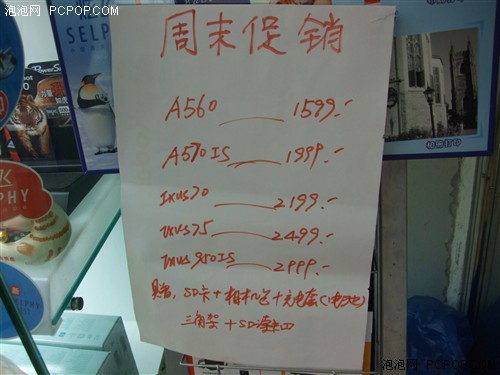 泡泡网 PCPOP.COM
SELPHY
PowerSh
周末促销
A560 —— 1599.-
A570IS —— 1999.-
IXUS70 —— 2199.-
IXUS75 —— 2499.-
IXUS950IS —— 2999.-
赠: SD卡+相机包+充电套(电池)
三角架+SD读卡四
PHY
SELPHY
泡泡网 PCPOP.COM